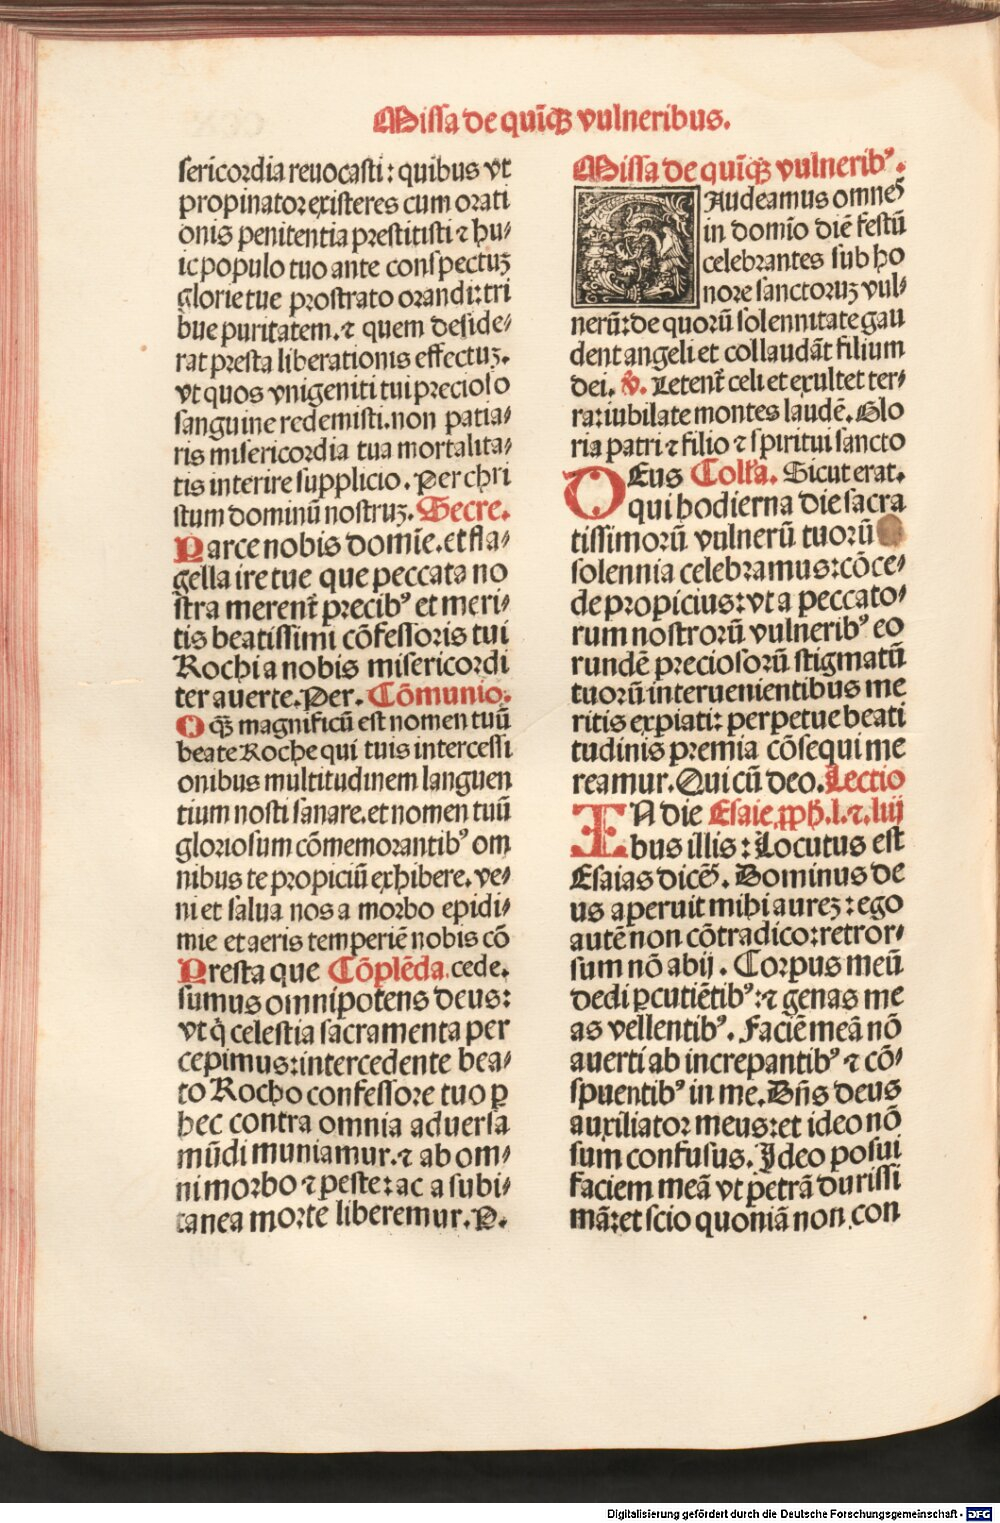 Missa de quīqꝫ vulneribus.
sericordia reuocasti: quibus vt
propinator existeres cum orati
onis penitentia prestitisti ⁊ hu⸗
ic populo tuo ante conspectuꝫ
glorie tue prostrato orandi: tri
bue puritatem. ⁊ quem deside⸗
rat presta liberationis effectuꝫ.
vt quos vnigeniti tui precioso
sanguine redemisti. non patia⸗
ris misericordia tua mortalita⸗
tis interire supplicio. Per chri
stum dominū nostruꝫ. Secre.
Parce nobis domīe. et fla⸗
gella ire tue que peccata no
stra merent᷑ precibꝰ et meri⸗
tis beatissimi cōfessoris tui
Rochi a nobis misericordi
ter auerte. Per. Cōmunio.
O qꝫ magnificū est nomen tuū
beate Roche qui tuis intercessi
onibus multitudinem languen
tium nosti sanare. et nomen tuū
gloriosum cōmemorantibꝰ om
nibus te propiciū exhibere. ve⸗
ni et salua nos a morbo epidi⸗
mie et aeris temperiē nobis cō
Presta que Cōplēda. cede.
sumus omnipotens deus:
vt q̄ celestia sacramenta per
cepimus: intercedente bea⸗
to Rocho confessore tuo ꝑ
hec contra omnia aduersa
mūdi muniamur. ⁊ ab om⸗
ni morbo ⁊ peste: ac a subi⸗
tanea morte liberemur. P.
Missa de quīqꝫ vulneribꝰ.
GAudeamus omneꝭ
in domīo diē festū
celebrantes sub ho
nore sanctoruꝫ vul⸗
nerū: de quorū solennitate gau
dent angeli et collaudāt filium
dei. ꝟ. Letent᷑ celi et exultet ter⸗
ra: iubilate montes laudē. Glo
ria patri ⁊ filio ⁊ spiritui sancto
DEus Coll'a. Sicut erat.
qui hodierna die sacra
tissimorū vulnerū tuorū
solennia celebramus: cōce⸗
de propicius: vt a peccato⸗
rum nostrorū vulneribꝰ eo
rundē preciosorū stigmatū
tuorū interuenientibus me
ritis expiati: perpetue beati
tudinis premia cōsequi me
reamur. Qui cū deo. Lectio
IN die Esaie. ꝓph̄. l. ⁊. liij
bus illis: Locutus est
Esaias dicēs. Dominus de
us aperuit mihi aureꝫ: ego
autē non cōtradico: retror⸗
sum nō abij. Corpus meū
dedi ꝑcutiētibꝰ: ⁊ genas me
as vellentibꝰ. Faciē meā nō
auerti ab increpantibꝰ ⁊ cō⸗
spuentibꝰ in me. Dn̄s deus
auxiliator meus: et ideo nō
sum confusus. Ideo posui
faciem meā vt petrā durissi
mā: et scio quoniā non con
Digitalisierung gefördert durch die Deutsche Forschungsgemeinschaft - DFG